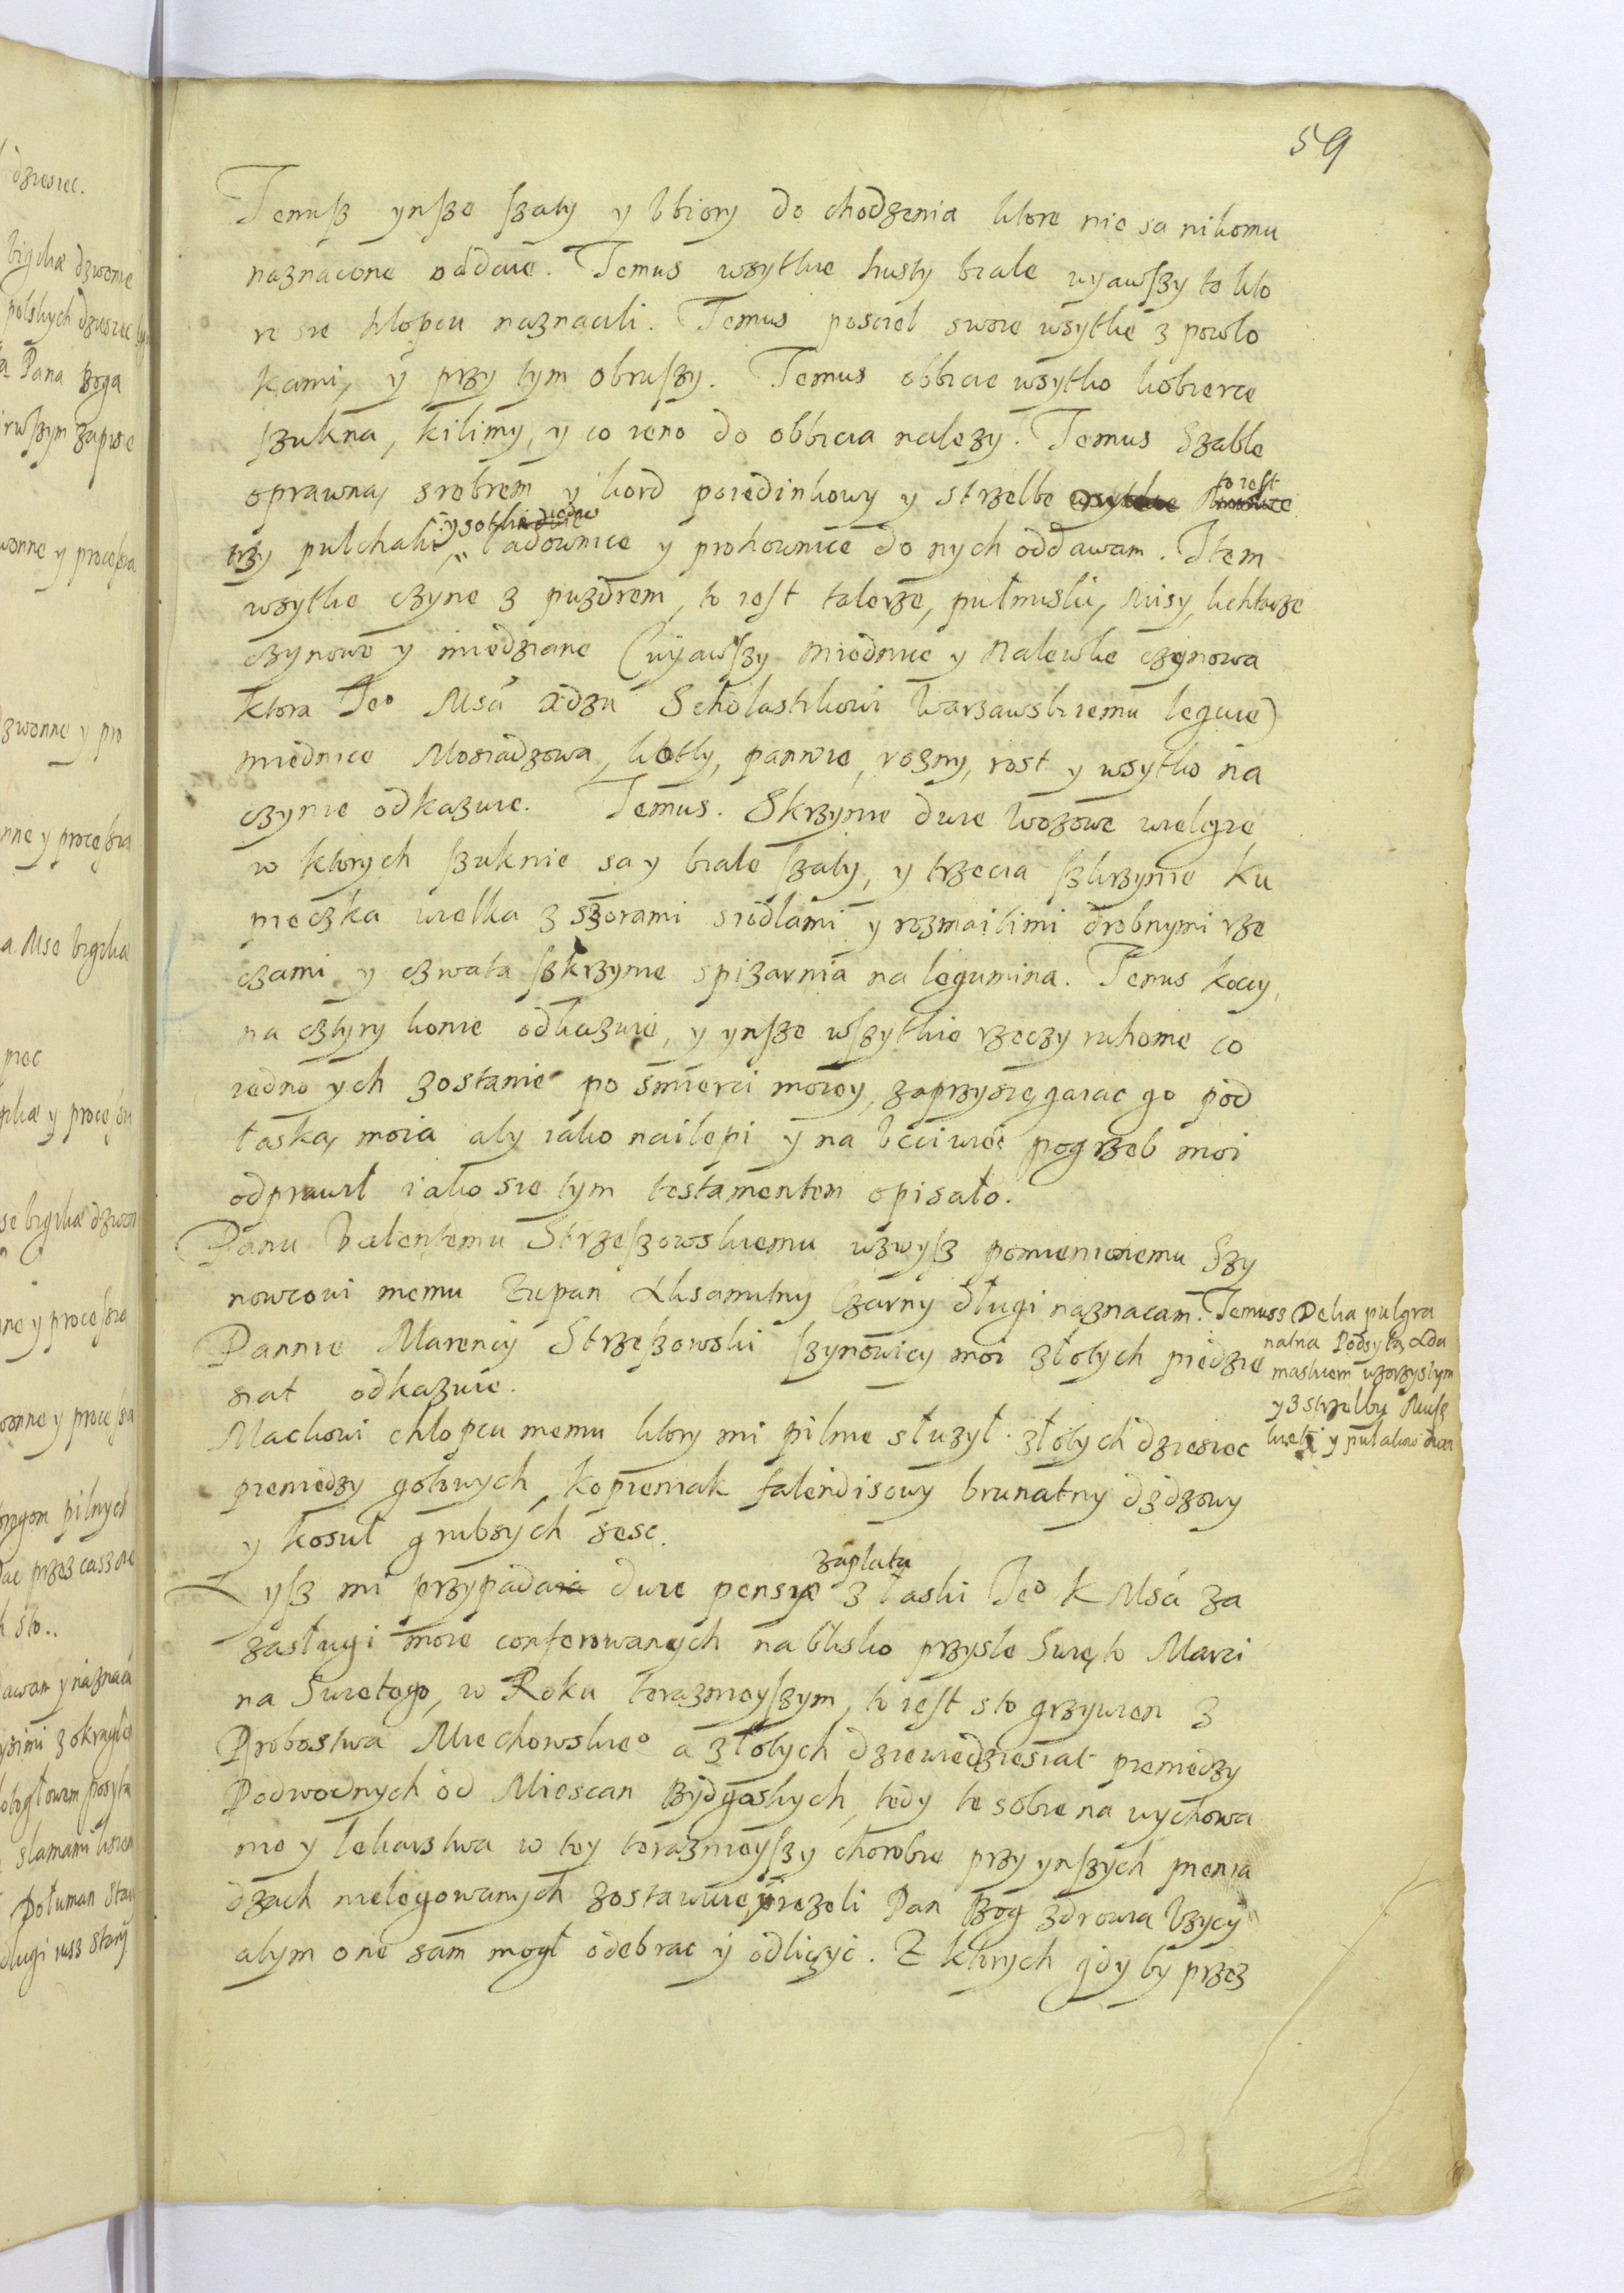 59
Temusz ynsze szaty y Vbiory do chodzenia ktore nie sa nikomu
naznacone oddaie. Temus wsytkie husty biale wyawszy to kto
re sie hłopcu naznacili. Temus posciel swoie wsytkie z powło
kami, y przy tym obruszy. Temus obbicie wsytko kobierce
szukna, kilimy, y co ieno do obbicia nalezy. Temus Szable
oprawną srebrem y kord poiedinkowy y strzelbe to iest
trzy pulchaki ładownice y prohownice do nych oddawam. Item
wsytkie czyne z puzdrem, to iest talerze, pułmiski, misy, lichtarze
czynowe y miedziane (wyawszy miednice y Nalewke czynowa
ktora Ieo Mśći xdzu Scholastikowi Warzawskiemu leguie)
miednice Mosiadzowa, kotły, pannwie, rozny, rost y wsytko na
czynie odkazuie. Temus. Skrzynie dwie Wozowe wielgie
w ktorych szuknie sa y biale szaty, y trzecia szkrzynie ku
pieczka wielka z szorami siodlami y rozmaitimi drobnymi rze
czami y czwata szkrzynie spizarnia na legumina. Temus koczy,
na cztyry konie odkazuie, y ynsze wszytkie rzeczy ruhome co
iedno ych zostanie po smierci moiey, zaprzysięgaiac go pod
łaską moia aby iako nailepi y na Vcciwie pogrzeb moi
odprawił iako sie tym testamentem opisało.
Panu Valentemu Strzeszowskiemu wzwysz pomienionemu Szy
nowcowi memu Zupan Aksamitny Czarny długi naznacam. Temuss Delia pulgra
natna Podsyta Ada
maskiem wzorzystym
y z strzelby Musz
kiet y pułhako dwa
Pannie Marency Strzeszowski szynowicy moi złotych piedzie
siat odkazuie.
Mackowi chłopcu memu ktory mi pilnie słuzył złotych dziesiec
pieniedzy gotowych, kopieniak falendisowy brunatny dzdzowy
y kosul grubsych sesc.
Ysz mi przypadaia dwie pensye zapłata z łaski Ieo K Mśći za
zasługi moie conferowanych na blisko przyśle Swięto Marci
na Swietego, w Roku terazmieyszym, to iest sto grzywien z
Probostwa Miechowskieo a złotych dziewiedziesiat pieniedzy
Podwodnych od Miescan Bydgoskych, tedy te sobie na wychowa
nie y lekarstwa w tey terazmieyszy chorobie przy ynszych pienia
dzach nielegowanych zostawuie, iezeli Pan Bog zdrowia Vzycy
abym one sam mogł odebrac y odliczyc. Z ktorych gdy by przez